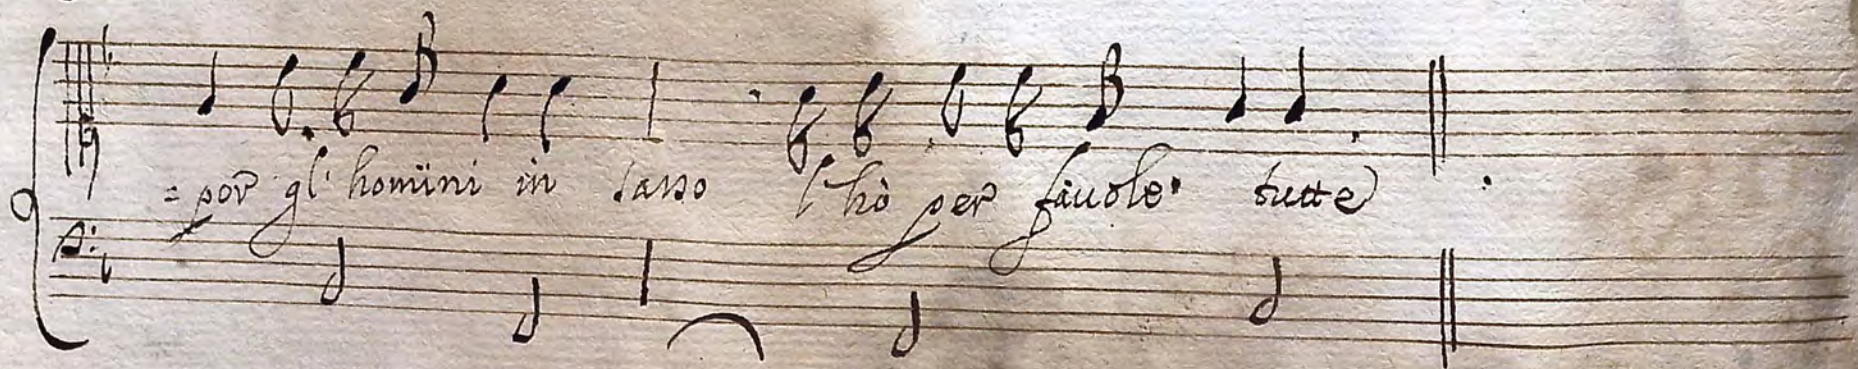 =por gl' homini in sasso l'hò per fauole tutte